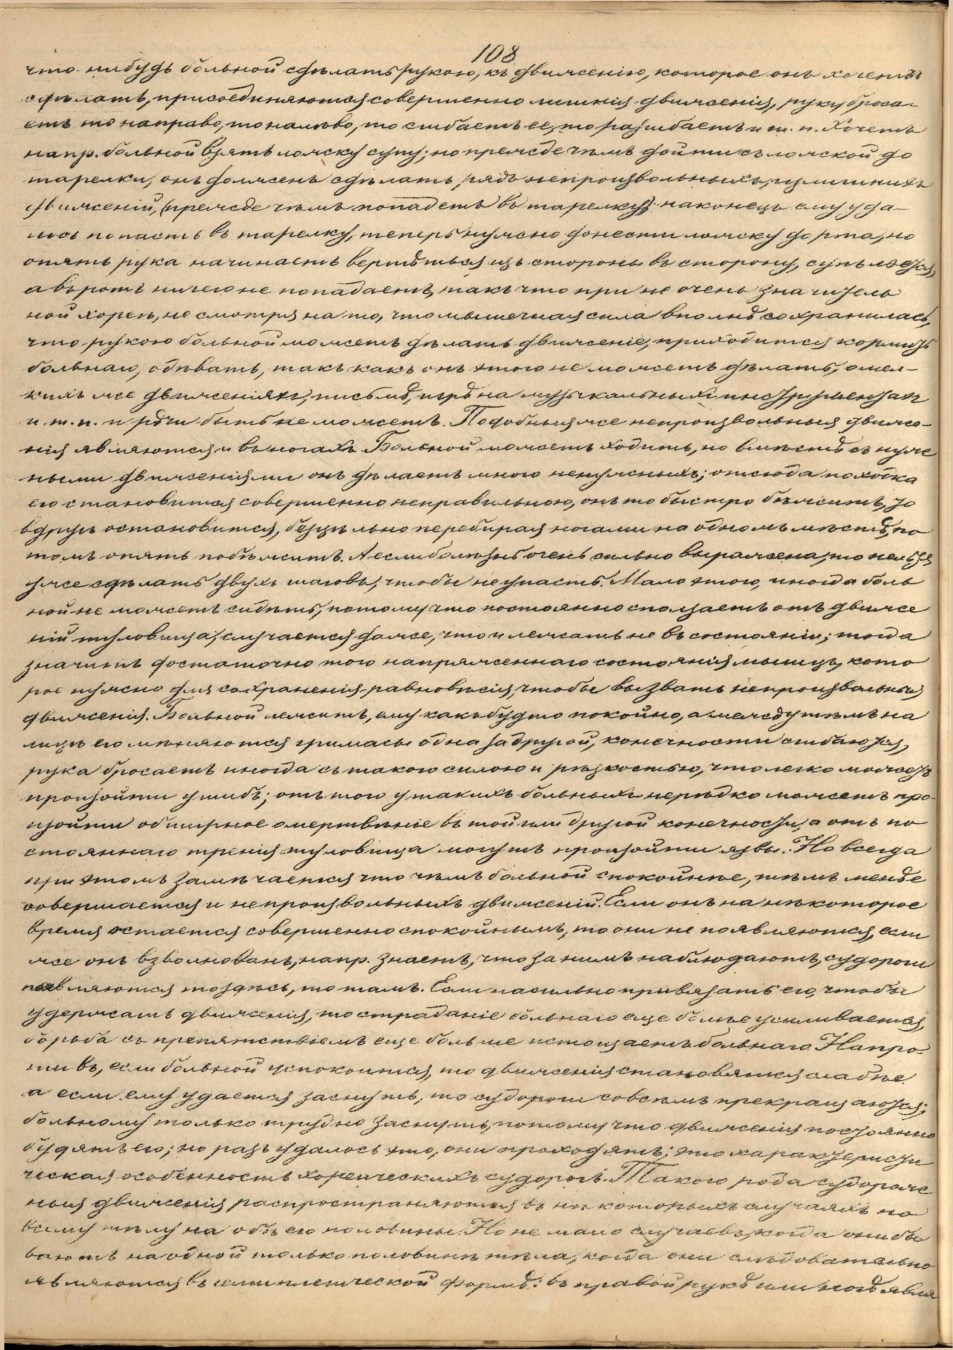 108
что нибудь больной сдѣлать рукою, къ движенію, которое онъ хочетъ
сдѣлать, присоединяются совершенно лишнія движенія, руку броса-
етъ то направо, то налѣво, то сгибаетъ ее, то разгибаетъ и т. п. Хочетъ
напр. больной взять ложку супу; но прежде чѣмъ дойти съ ложкой до
тарелки, онъ долженъ сдѣлать рядъ непроизвольныхъ, излишнихъ
движеній, (прежде чѣмъ попадетъ въ тарелку) наконецъ ему уда-
лось попасть въ тарелку, теперь нужно донести ложку до рта, но
опять рука начинаетъ вертѣться изъ стороны въ сторону, супъ льется,
а въ ротъ ничего не попадаетъ, такъ что при не очень значитель
ной хореѣ, не смотря на то, что мышечная сила вполнѣ сохранилась,
что рукою больной можетъ дѣлать движеніе, приходится кормить
больнаго, одѣвать, такъ какъ онъ этого не можетъ дѣлать, о мел-
кихъ же движеніяхъ, письмѣ, игрѣ на музыкальныхъ инструментахъ
и. т. п. и рѣчи быть не можетъ. Подобныя же непроизвольныя движе-
нія являются и въ ногахъ. Больной можетъ ходить, но вмѣстѣ съ нуж
ными движеніями онъ дѣлаетъ много ненужныхъ; отсюда походка
его становится совершенно неправильною, онъ то быстро бѣжитъ, то
вдругъ остановится, безцѣльно перебирая ногами на одномъ мѣстѣ, по
томъ опять побѣжитъ. А если болѣзнь очень сильно выражена, то нельзя
уже сдѣлать двухъ шаговъ, чтобы не упасть. Мало этого, иногда боль
ной не можетъ сидѣть, потому что постоянно сползаетъ отъ движе
ній туловища, случается даже, что и лежать не въ состояніи; тогда
значитъ достаточно того напряженнаго состоянія мышцъ, кото
рое нужно для сохраненія равновѣсія, чтобы вызвать непроизвольныя
движенія. Больной лежитъ, ему какъ будто покойно, а между тѣмъ на
лицѣ его мѣняются гримасы одна за другой, конечности сгибаются,
рука бросаетъ иногда съ такою силою и рѣзкостью, что легко можетъ
произойти ушибъ; отъ того у такихъ больныхъ нерѣдко можетъ про-
изойти обширное омертвѣніе въ той или другой конечности, а отъ по
стояннаго тренія туловища могутъ произойти язвы. Но всегда
при этомъ замѣчается что чѣмъ больной спокойнѣе, тѣмъ менѣе
совершается и непроизвольныхъ движеній. Если онъ на нѣкоторое
время остается совершенно спокойнымъ, то они не появляются, если
же онъ взволнованъ, напр. знаетъ, что за нимъ наблюдаютъ, судороги
появляются то здѣсь, то тамъ. Если насильно привязать его, чтобы
удержать движенія, то страданіе больнаго еще болѣе усиливается
борьба съ препятствіемъ еще больше истощаетъ больнаго. Напро-
тивъ, если больной успокоится, то движенія становятся слабѣе
а если ему удается заснуть, то судороги совсѣмъ прекращаются;
больному только трудно заснуть, потому что движенія постоянно
будятъ его; но разъ удалось это, они проходятъ; это характеристи
ческая особенность хореическихъ судорогъ. Такого рода судорож
ныя движенія распространяются въ нѣкоторыхъ случаяхъ по
всему тѣлу на обѣ его половины. Но не мало случаевъ, когда они бы
ваютъ на одной только половинѣ тѣла, когда они слѣдовательно
являются въ гемиплегической формѣ: въ правой рукѣ или ногѣ явля